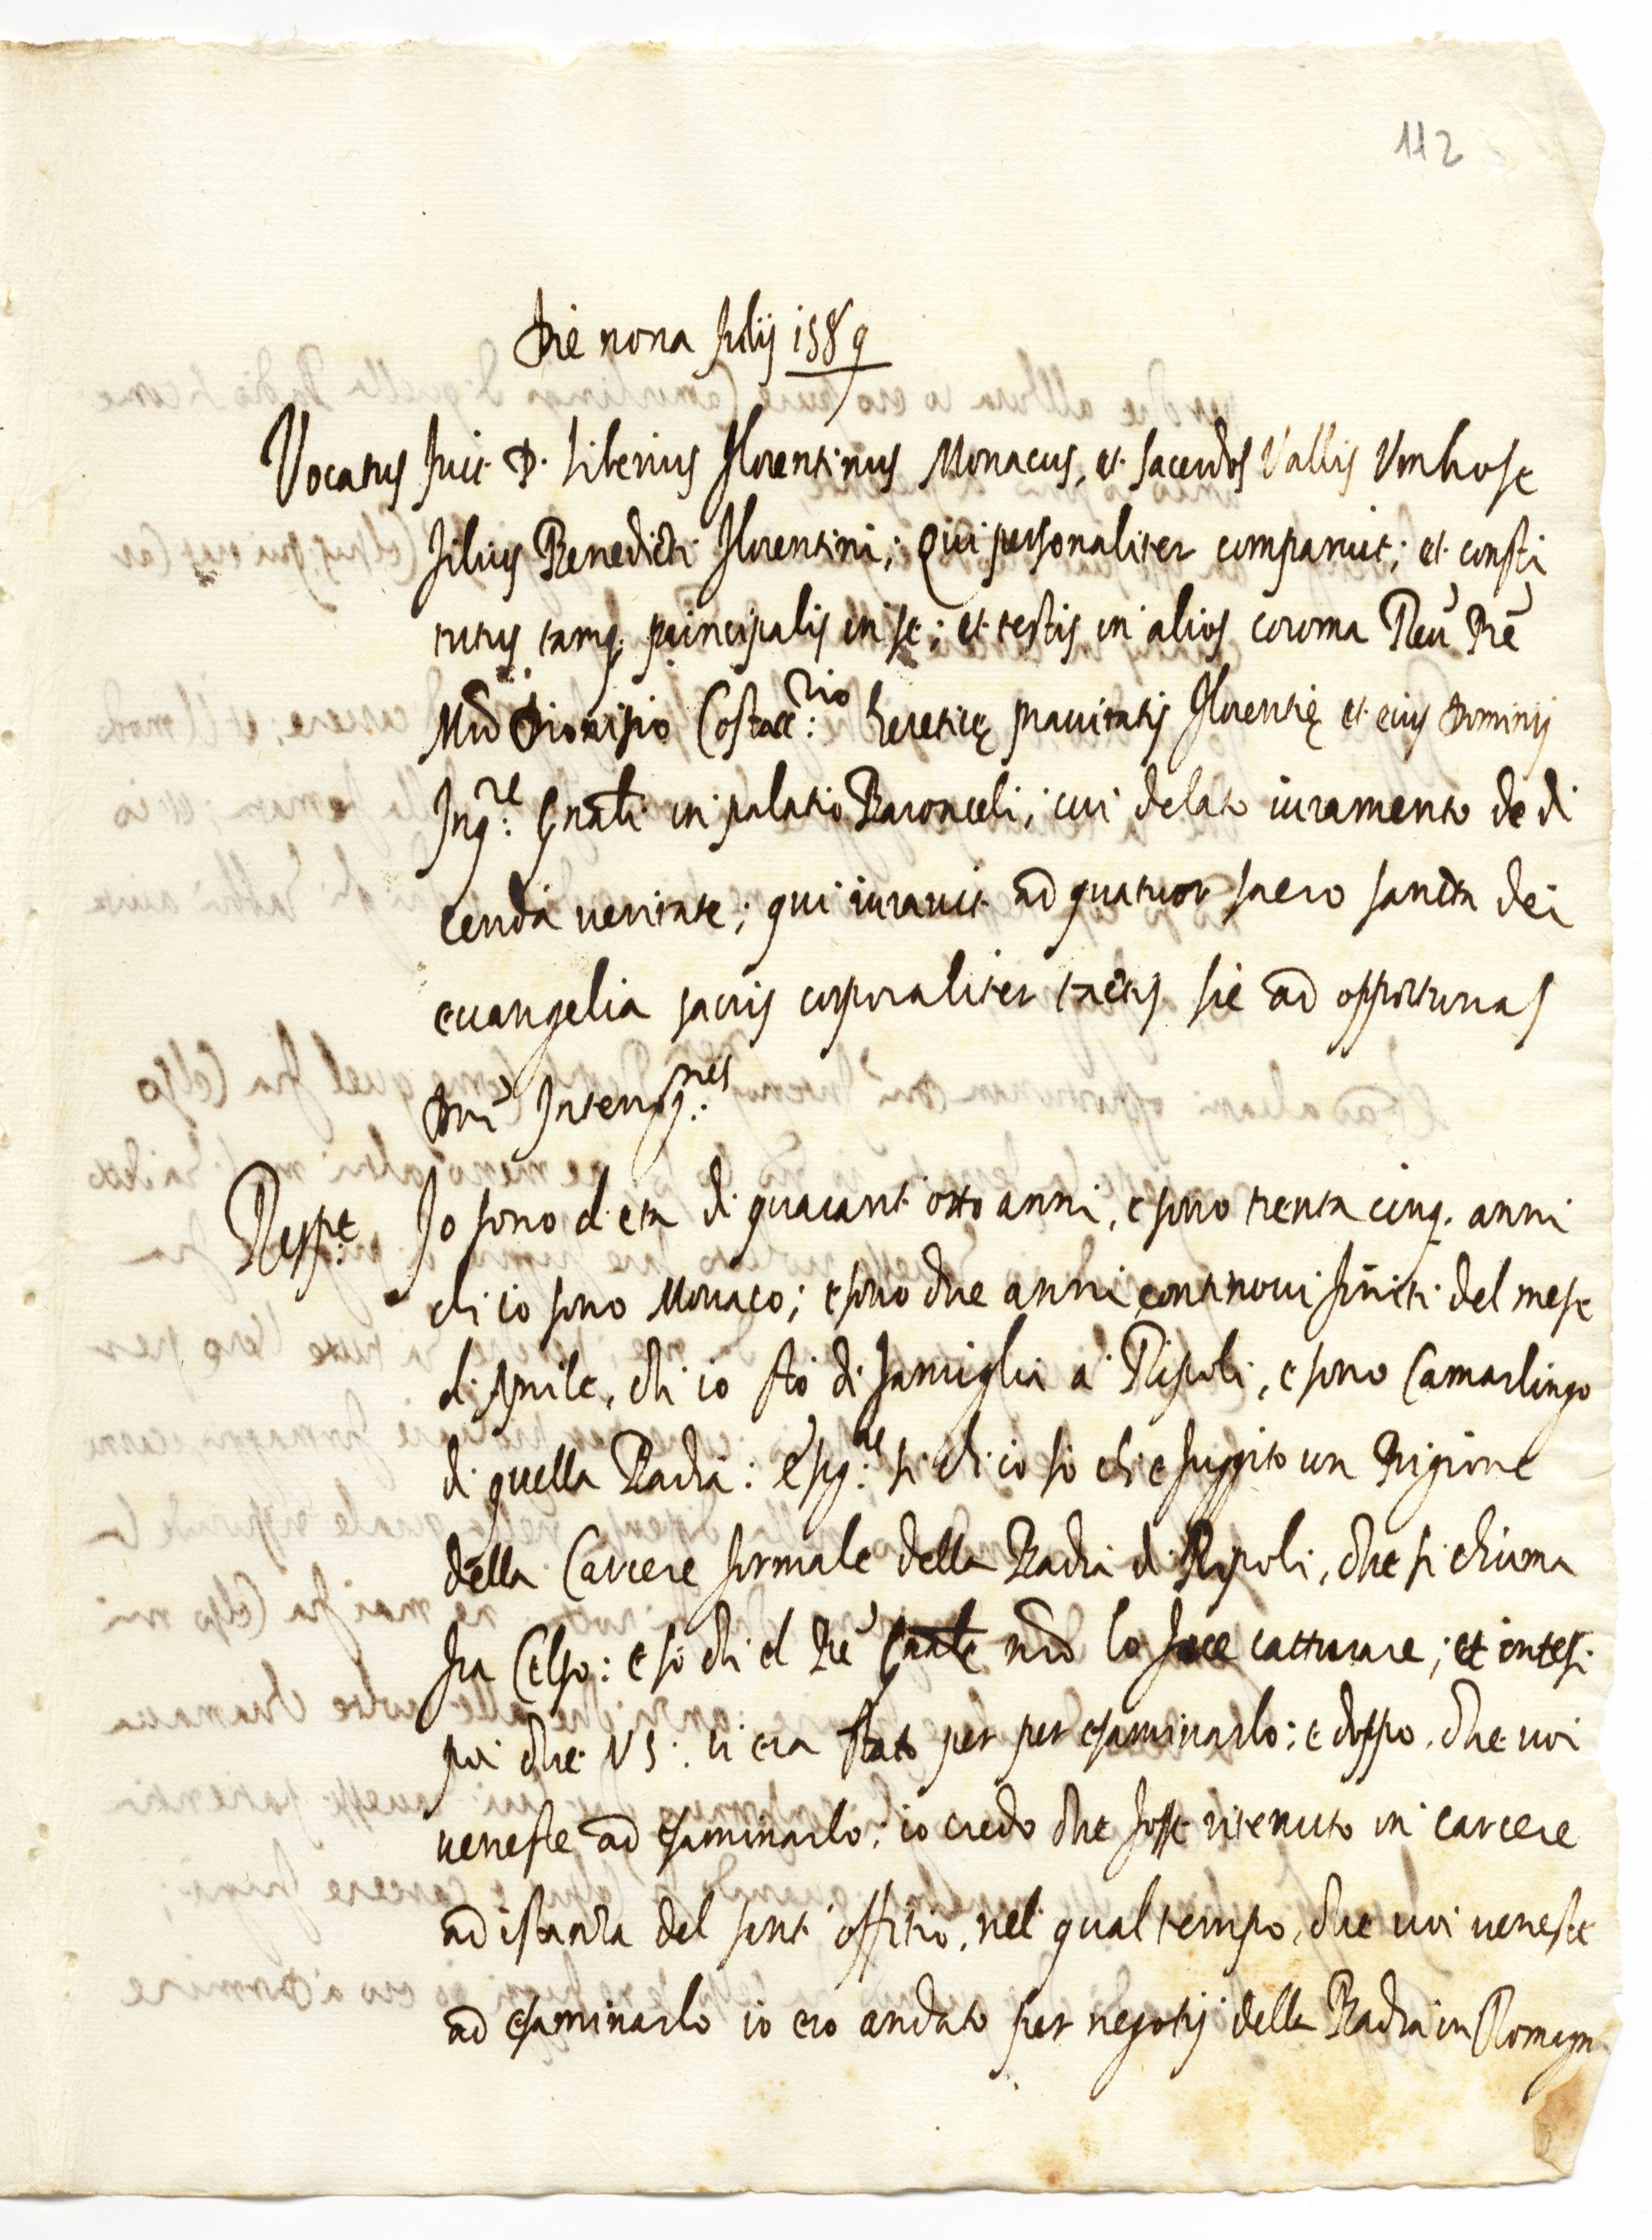 112
Die nona Julij 1589
Vocatus fuit D. Tiberius florentinus Monacus, et sacerdos Vallis Umbrose
filius Benedicti florentini; Qui personaliter comparuit; et consti
tutus tamq. principalis in se; et testis in alios coroma Reu Pre
Mro Dionisio Costacc:rio heretice prauitatis florentie et eius Dominij
Inq:re Gnali in palatio Baronceli; cui delato iuramento de di
cenda ueritate; qui iurauit ad quatuor sacro sancta dei
euangelia sacris corporaliter tactis sic ad opportunas
Dni Interrog:nes
Resp:t Io sono d eta di quarant otto anni, e sono trenta cinq. anni
ch io sono Monaco; e sono due anni continoui finiti del mese
di Aprile, ch io sto di famiglia a Ripoli, e sono Camarlingo
di quella Badia: e seg:te si ch io so ch e fuggito un Prigione
della Carcere formale della Badia di Ripoli, che si chiama
fra Celso: e so ch el Pre Gnale nro lo fece catturare; et intesi
poi che VS: ui era stato per per esaminarlo; e doppo, che uoi
ueneste ad esaminarlo; io credo che fosse ritenuto in carcere
ad istantia del sant' offitio, nel qual tempo, che uoi ueneste
ad esaminarlo io ero andato per negotij della Badia in Romagn